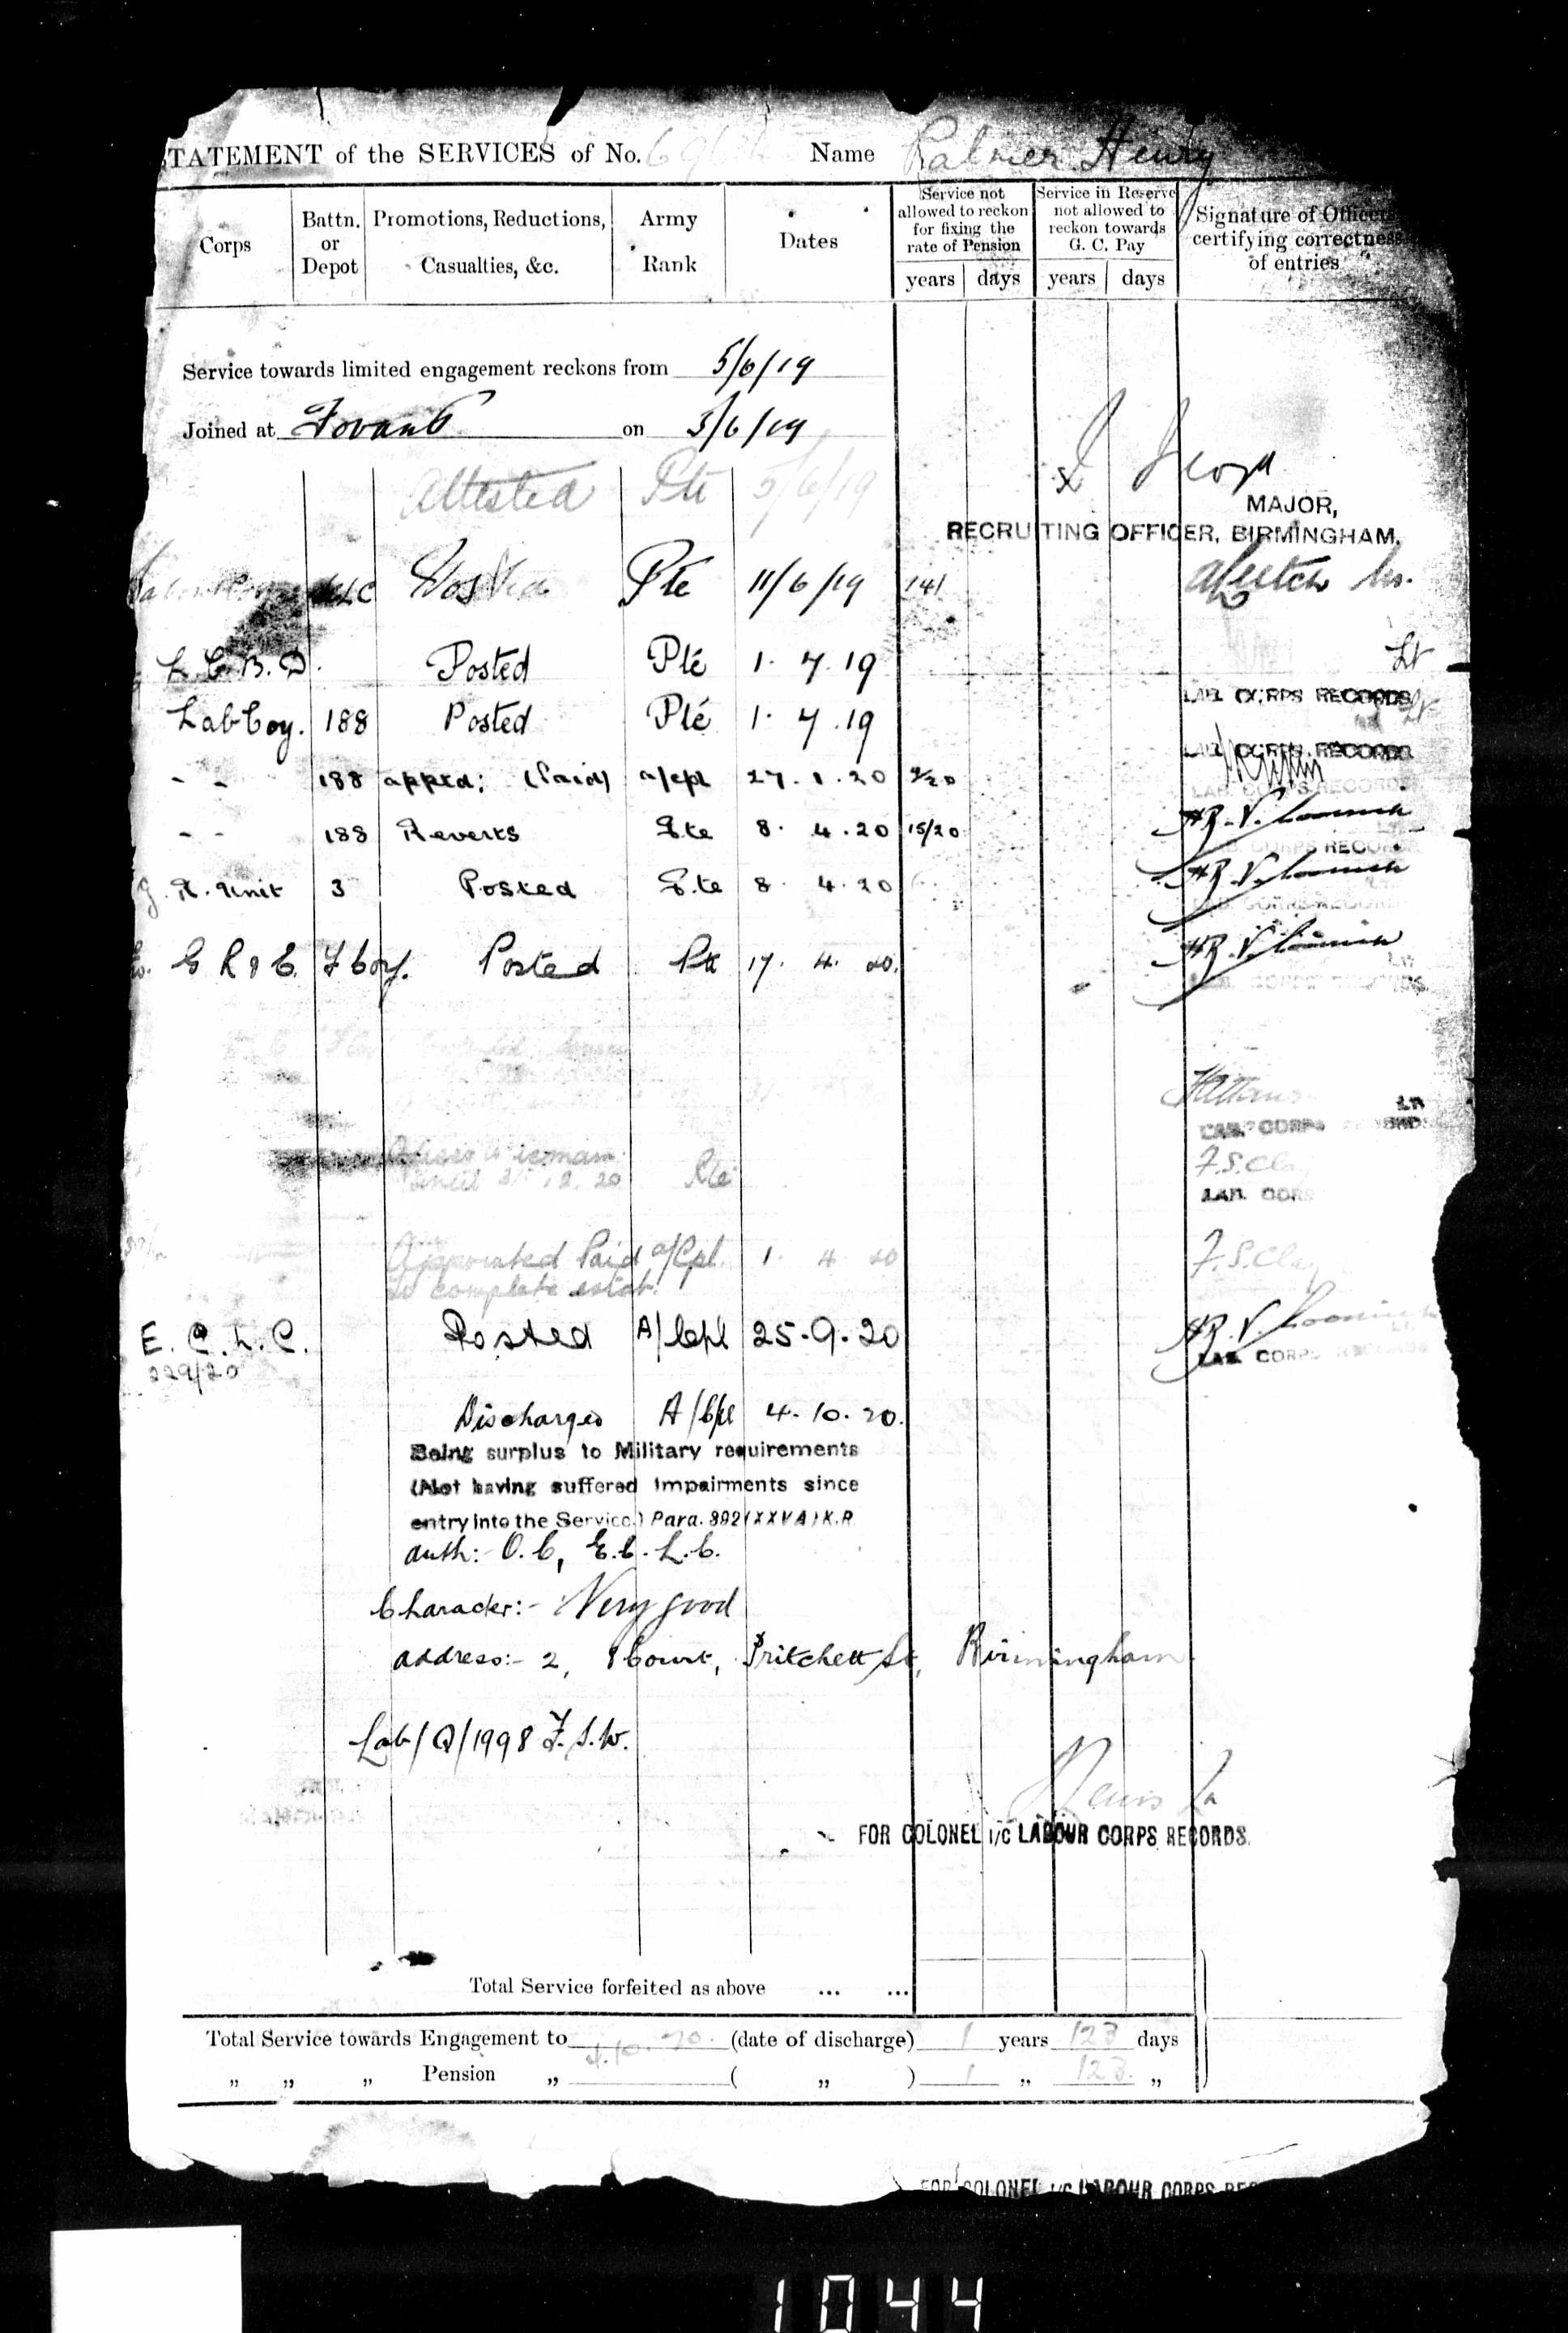 STATEMENT of the SERVICES of No. Name Palmer Henry
Corps
Battn. or Depot
Promotions, Reductions, Casualties, &c.
Army Rank
Dates
Service not allowed to reckon for fixing the rate of Pension
years days
Service in Reserve not allowed to reckon towards G. C. Pay
years days
Signature of Officers certifying correctness of entries
Service towards limited engagement reckons from 5/6/19
Joined at Fovant on 5/6/19
Attested Pte 5/6/19
MAJOR,
RECRUITING OFFICER, BIRMINGHAM.
Posted Pte 11/6/19 141
L.C.B.D. Posted Pte 1. 7. 19 Lt
LAB. CORPS RECORDS
Lab Coy. 188 Posted Pte 1. 7. 19 Lt
LAB. CORPS RECORDS
- - 188 appted: (Paid) a/cpl 27. 1. 20 2/20
LAB. CORPS RECORDS
- - 188 Reverts Pte 8. 4. 20 15/20
LAB. CORPS RECORDS
R. Unit 3 Posted Pte 8. 4. 20
LAB. CORPS RECORDS
G R & C. F Coy. Posted Pte 17. 4. 20.
LAB. CORPS RECORDS
Lt
LAB. CORPS RECORDS
until 31.12.20 Pte F.S. Clay
LAB. CORPS
Appointed Paid a/Cpl. 1. 4 20 F.S. Clay
to complete estab.
E. C. L. C. Posted A/Cpl 25.9.20
229/20
LAB. CORPS RECORDS
Discharged A/Cpl 4.10.20.
Being surplus to Military requirements
(Not having suffered impairments since
entry into the Service.) Para. 392 (XXVA) K.R.
auth:- O.C, E.C.L.C.
Character:- Very good
address:- 2, 8 Court, Pritchett St, Birmingham
Lab/Q/1998 F.S.W.
FOR COLONEL i/c LABOUR CORPS RECORDS.
Total Service forfeited as above ... ...
Total Service towards Engagement to 4.10.20. (date of discharge) 1 years 123 days
„ „ „ Pension „ ( „ ) 1 „ 123. „
FOR COLONEL i/c LABOUR CORPS REC
1044